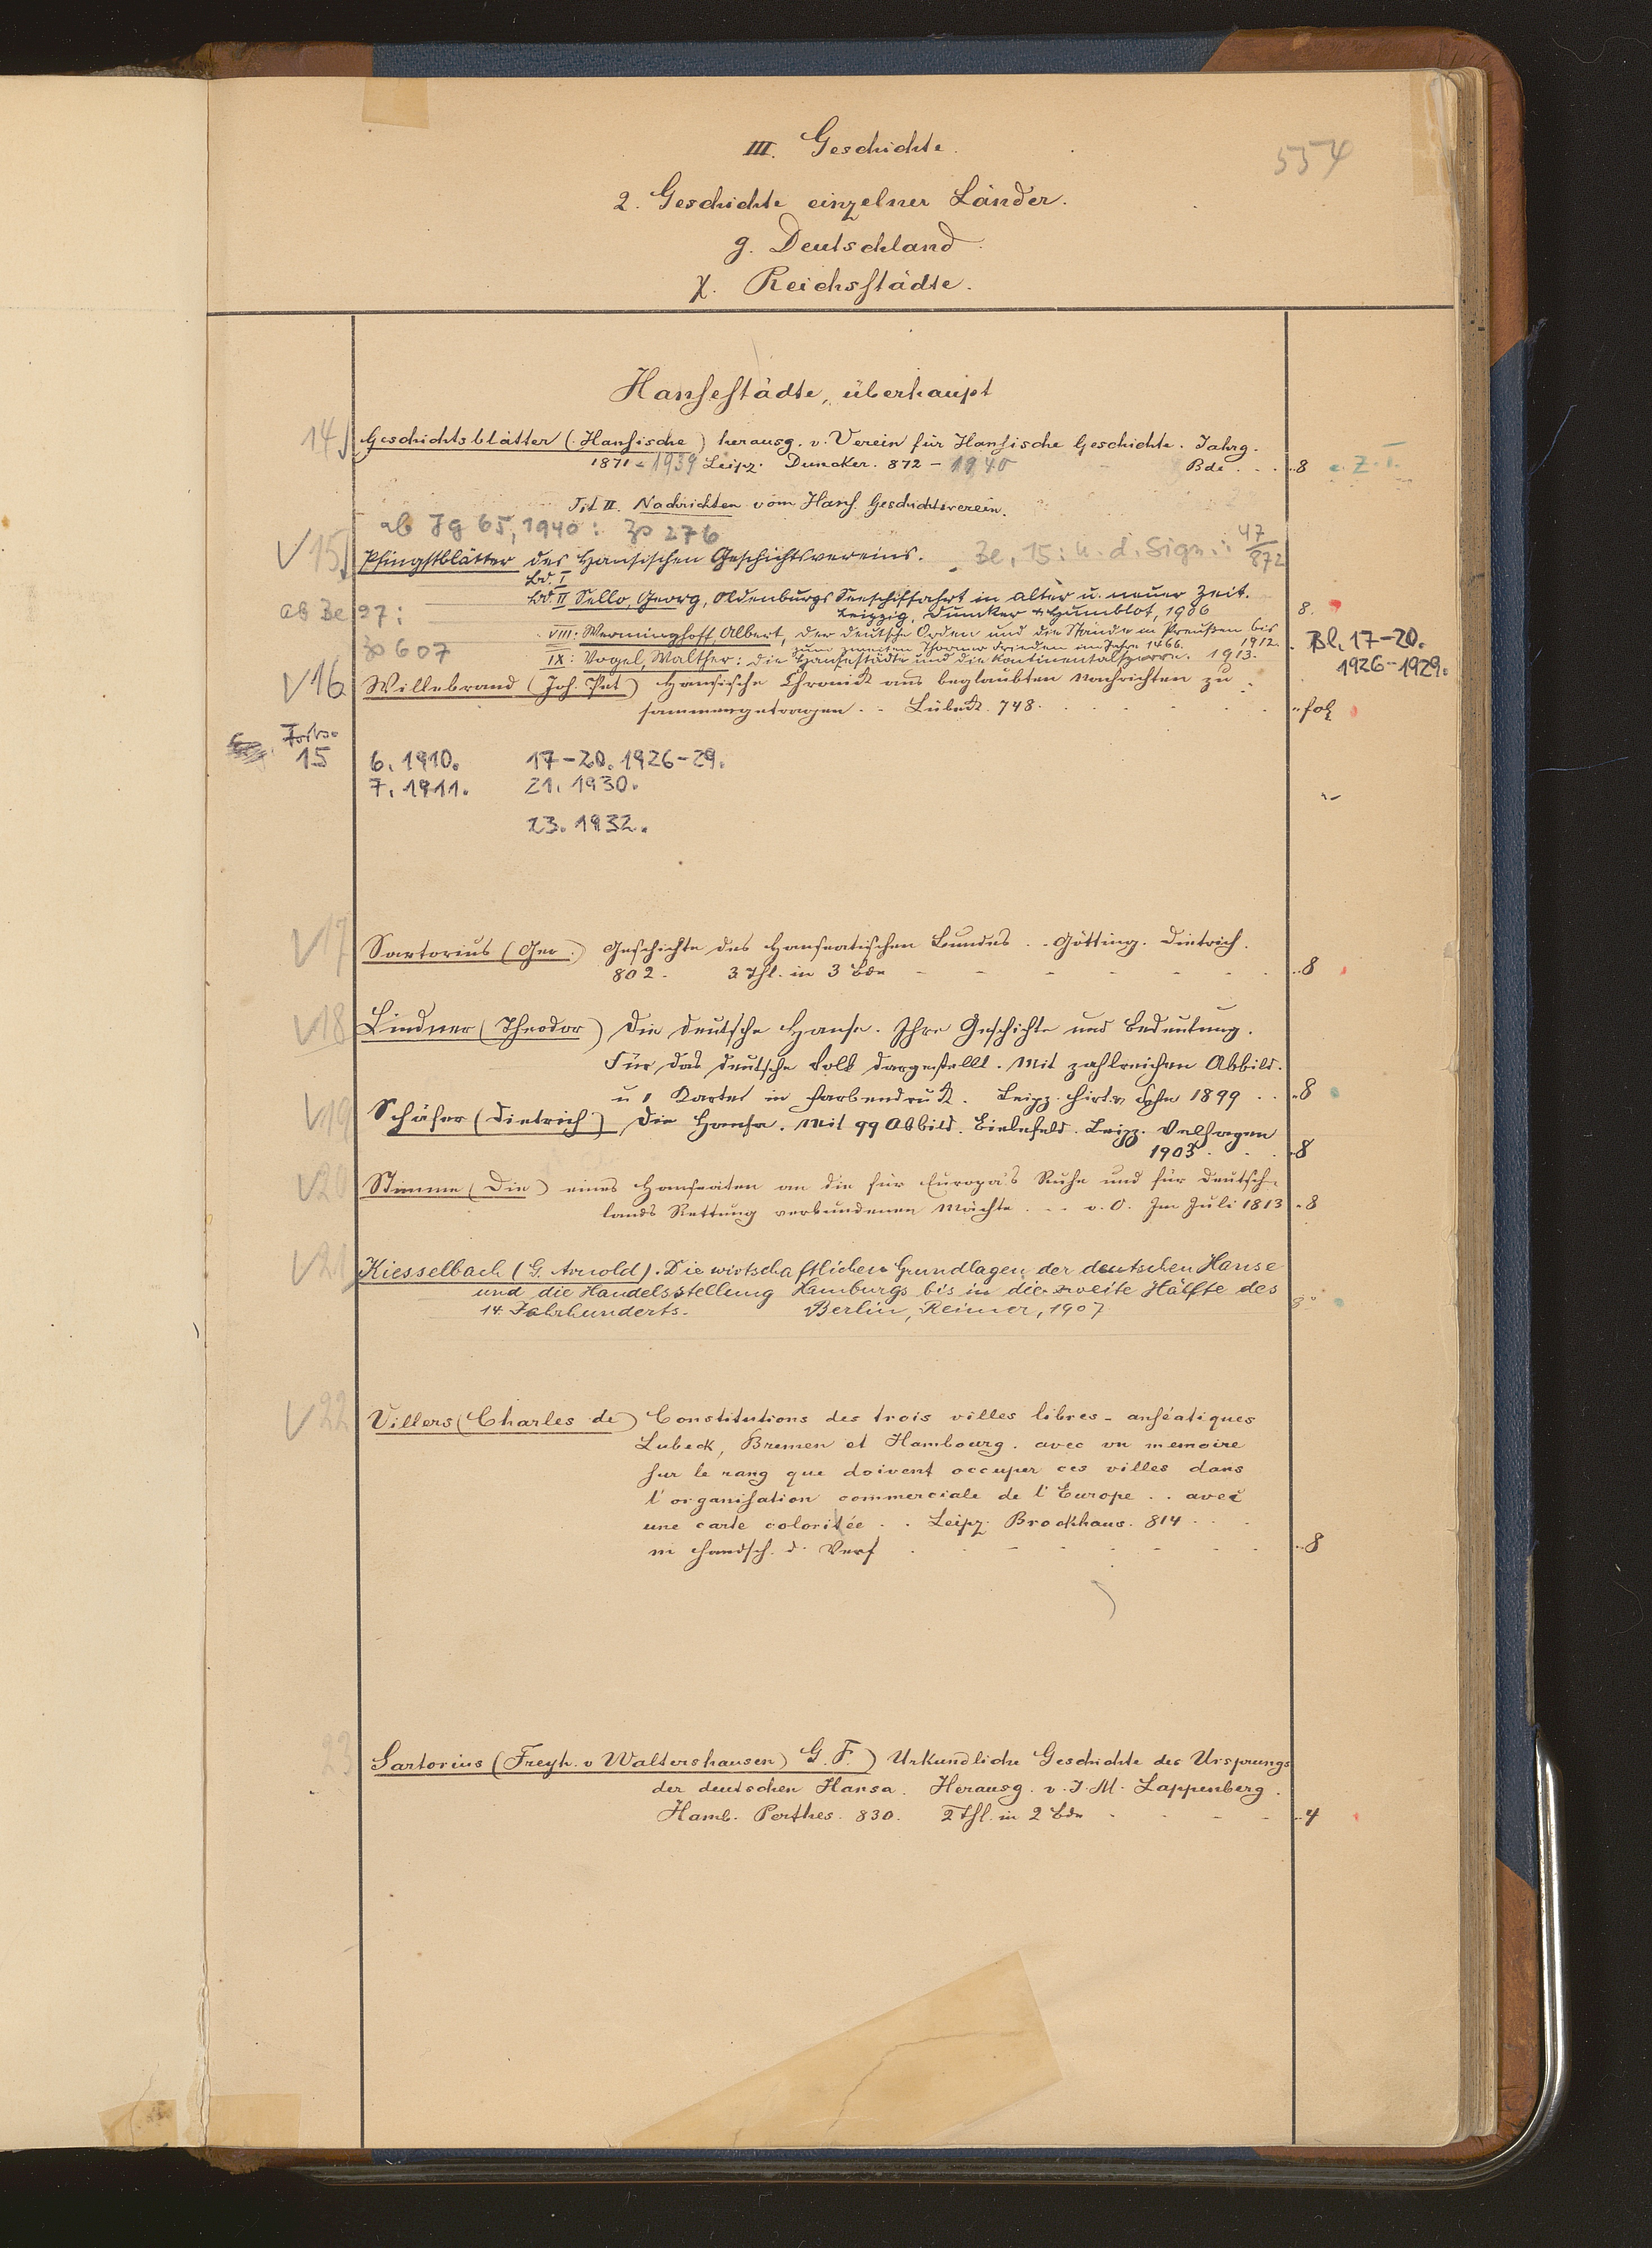 III. Geschichte.
554
2. Geschichte einzelner Länder.
g. Deutschland.
χ. Reichsstädte.
Hansestädte, überhaupt
14 Geschichtsblätter (Hansische) herausg. v. Verein für Hansische Geschichte. Jahrg.
1871 - 1939 Leipz. Duncker. 872 - 1940 Bde . . . 8 Z. T.
Tit II. Nachrichten vom Hans. Geschichtsverein.
ab Jg 65, 1940: Zs 276
V 15 Pfingstblätter des Hansischen Geschichtsvereins. Ze, 15: u. d. Sign.: 47/872
Bd. I
Bd. II Sello, Georg, Oldenburgs Seeschiffahrt in alter u. neuer Zeit.
ab Ze 97: Leipzig, Dunker & Humblot, 1906 8.
VIII: Werminghoff Albert, Der deutsche Orden und die Stände in Preußen bis
zum zweiten Thorner Frieden im Jahre 1466. 1912. Bl. 17-20.
Zs 607 IX: Vogel, Walther: Die Hansestädte und die Kontinentalsperre. 1913. 1926-1929.
V 16 Willebrand (Joh. Pet) Hansische Chronick aus beglaubten Nachrichten zu
sammengetragen . . Lübeck. 748. fol
Forts.
15 6. 1910. 17-20. 1926-29.
7. 1911. 21. 1930.
23. 1932.
V 17 Sartorius (Geo.) Geschichte des Hanseatischen Bundes . . Götting. Dietrich.
802. 3 Thl. in 3 Bde 8
V 18 Lindner (Theodor) Die deutsche Hanse. Ihre Geschichte und Bedeutung.
Für das deutsche Volk dargestellt. Mit zahlreichen Abbild.
u 1 Karte in Farbendruck. Leipz. Hirt & Sohn 1899 . . 8
V 19 Schäfer (Dietrich) Die Hanse. Mit 99 Abbild. Bielefeld. Leipz. Velhagen
1903 . . . 8
V 20 Stimme (Die) eines Hanseaten an die für Europa's Ruhe und für Deutsch-
lands Rettung verbundenen Mächte . . . o. O. Im Juli 1813 8
V 21 Kiesselbach (G. Arnold). Die wirtschaftlichen Grundlagen der deutschen Hanse
und die Handelsstellung Hamburgs bis in die zweite Hälfte des
14. Jahrhunderts. Berlin, Reimer, 1907 8°
V 22 Villers (Charles de) Constitutions des trois villes libres-anséatiques
Lubeck, Bremen et Hambourg. avec un memoire
sur le rang que doivent occuper ces villes dans
l'organisation commerciale de l'Europe . . avec
une carte coloriée . . Leipz. Brockhaus. 814 . .
m Handsch. d. Verf 8
23 Sartorius (Freyh. v Waltershausen) G. F.) Urkundliche Geschichte des Ursprungs
der deutschen Hansa. Herausg. v. J. M. Lappenberg.
Hamb. Perthes. 830. 2 Thl. in 2 Bde 4